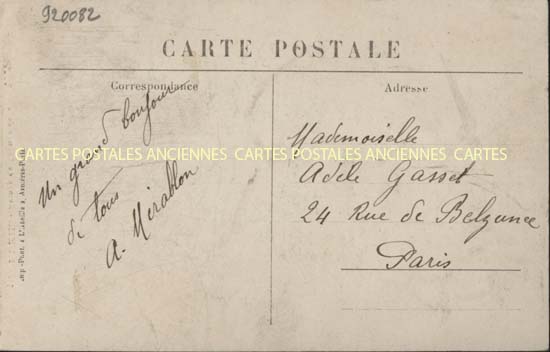 920082
CARTE POSTALE
Correspondance
Adresse
Un grand bonjour
de tous
A. Mirablon
Mademoiselle
Adèle Gasset
24 Rue de Belzunce
Paris
CARTES POSTALES ANCIENNES CARTES POSTALES ANCIENNES CARTES